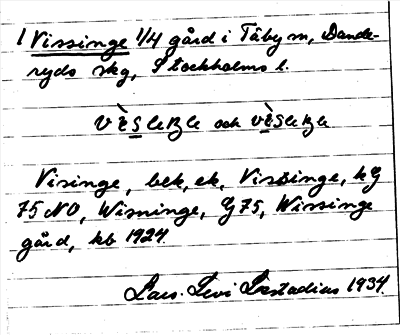 1 Vissinge 1/4 gård i Täby sn, Dande-
ryds skg, Stockholms l.
och
Visinge, bek, ek, Vissinge, kG
75 NO, Wisninge, G 75, Wissinge
gård, kb 1924.
Lars Levi Læstadius 1934.